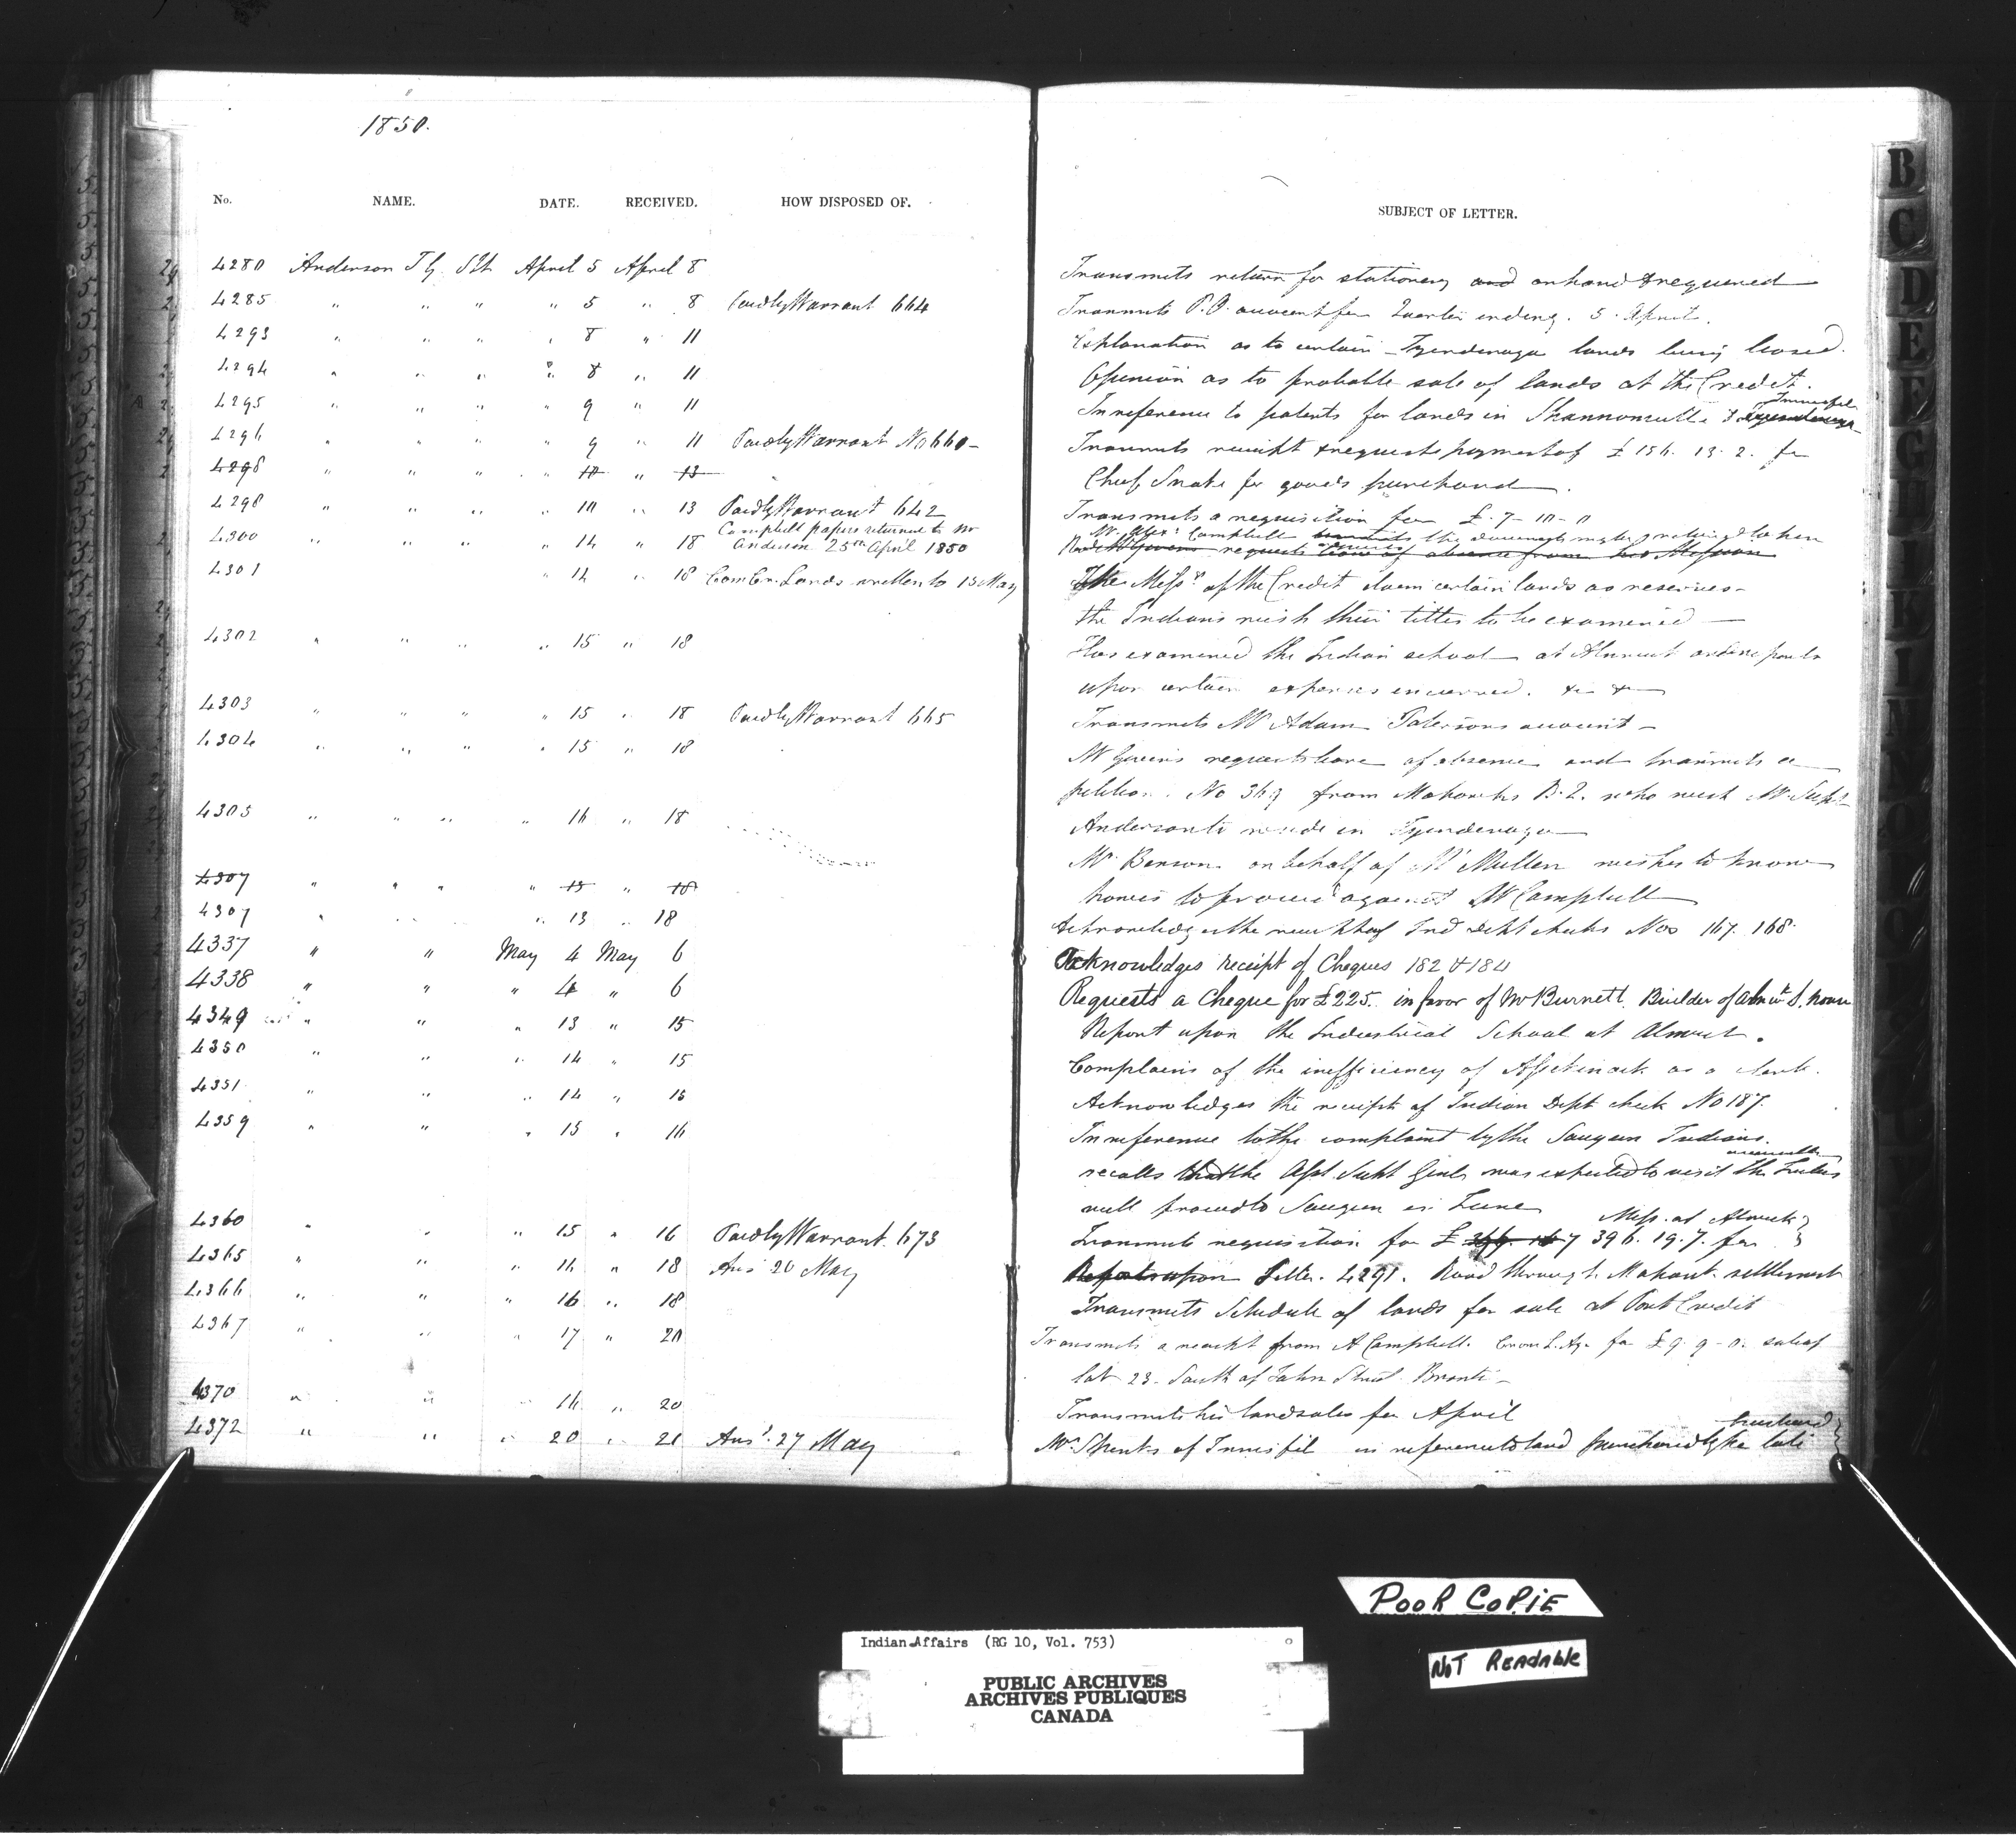 1850.
No. NAME. DATE. RECEIVED. HOW DISPOSED OF.
4280 Anderson T G. Supt April 5 April 8
4285 " " " " 5 " 8 Paid by Warrant 664
4293 " " " " 8 " 11
4294 " " " " 8 " 11
4295 " " " " 9 " 11
4296 " " " " 9 " 11 Paid by Warrant No 660-
4298 " " " " 10 " 13
4298 " " " " 10 " 13 Paid by Warrant 642
4300 " " " " 14 " 18 Campbell papers returned to Mr Anderson 25th April 1850
4301 " 14 " 18 Com Cn. Lands written to 13 May
4302 " " " " 15 " 18
4303 " " " " 15 " 18 Paid by Warrant 665
4304 " " " " 15 " 18
4305 " " " " 16 " 18
4307 " " " " 13 " 18
4307 " " " 13 " 18
4337 " " May 4 May 6
4338 " " " 4 " 6
4349 " " " 13 " 15
4350 " " " 14 " 15
4351 " " " 14 " 15
4359 " " " 15 " 16
4360 " " " 15 " 16 Paid by Warrant 673
4365 " " " 16 " 18 Ans 20 May
4366 " " " 16 " 18
4367 " " " 17 " 20
4370 " " " 16 " 20
4372 " " " 20 " 21 Ansd. 27 May
SUBJECT OF LETTER.
Transmits return for stationery and on hand & required
Transmits P.O. account for Quarter ending. 5 April.
Explanation as to certain Tyendenaga lands being leased.
Opinion as to probable sale of lands at the Credit.
In reference to patents for lands in Shannonville & Tyendenaga Innisfil
Transmits receipt & requests payment of £ 156. 13. 2. for
Chief Snake for goods purchased.
Transmits a requisition for £. 7-10-0
Mr Alexr Campbell the documents may be returned to him
requests leave of absence from his Mission
The Missrs of the Credit claim certain lands as reserves-
the Indians wish their titles to be examined
Has examined the Indian school at Alnwick and reports
upon certain expenses incurred. &c &c
Transmits Mr Adam Patersons account -
Mr Givins requests leave of absence and transmits a
petition. No 369 from Mohawks B.Q. who wish Mr Supt
Anderson to reside in Tyendenaga
Mr Benson on behalf of Mr Mullen wishes to know
how is to proceed against Mr Campbell
Acknowledges the receipt of Ind Dept checks Nos 167. 168.
Acknowledges receipt of Cheques 182 & 184
Requests a Cheque for £225. in favor of Mr Burnett. Builder of Alnwk S. house
Report upon the Industrial School at Alnwick.
Complains of the inefficiency of Assikinack as a clerk.
Acknowledges the receipt of Indian Dept check No 187.
In reference to the complaint by the Saugeen Indians.
recalls that the Asst. Supt Genl was expected to visit the Indians annually
will proceed to Saugeen in June
Transmits requisition for £ 396. 19. 7. for Miss. at Alnwick
Reports upon Letter. 4291. Road through Mohawk settlement
Transmits Schedule of lands for sale at Port Credit
Transmits a receipt from A Campbell. Crown L. Agt for £9-9-0. sale of
lot 23 South of John Street Bronte-
Transmits his land sales for April
Mrs Spinks of Innisfil in reference to land purchased by her late husband
B C D E F G H I K
POOR COPIE
NOT READABLE
Indian Affairs (RG 10, Vol. 753)
PUBLIC ARCHIVES
ARCHIVES PUBLIQUES
CANADA